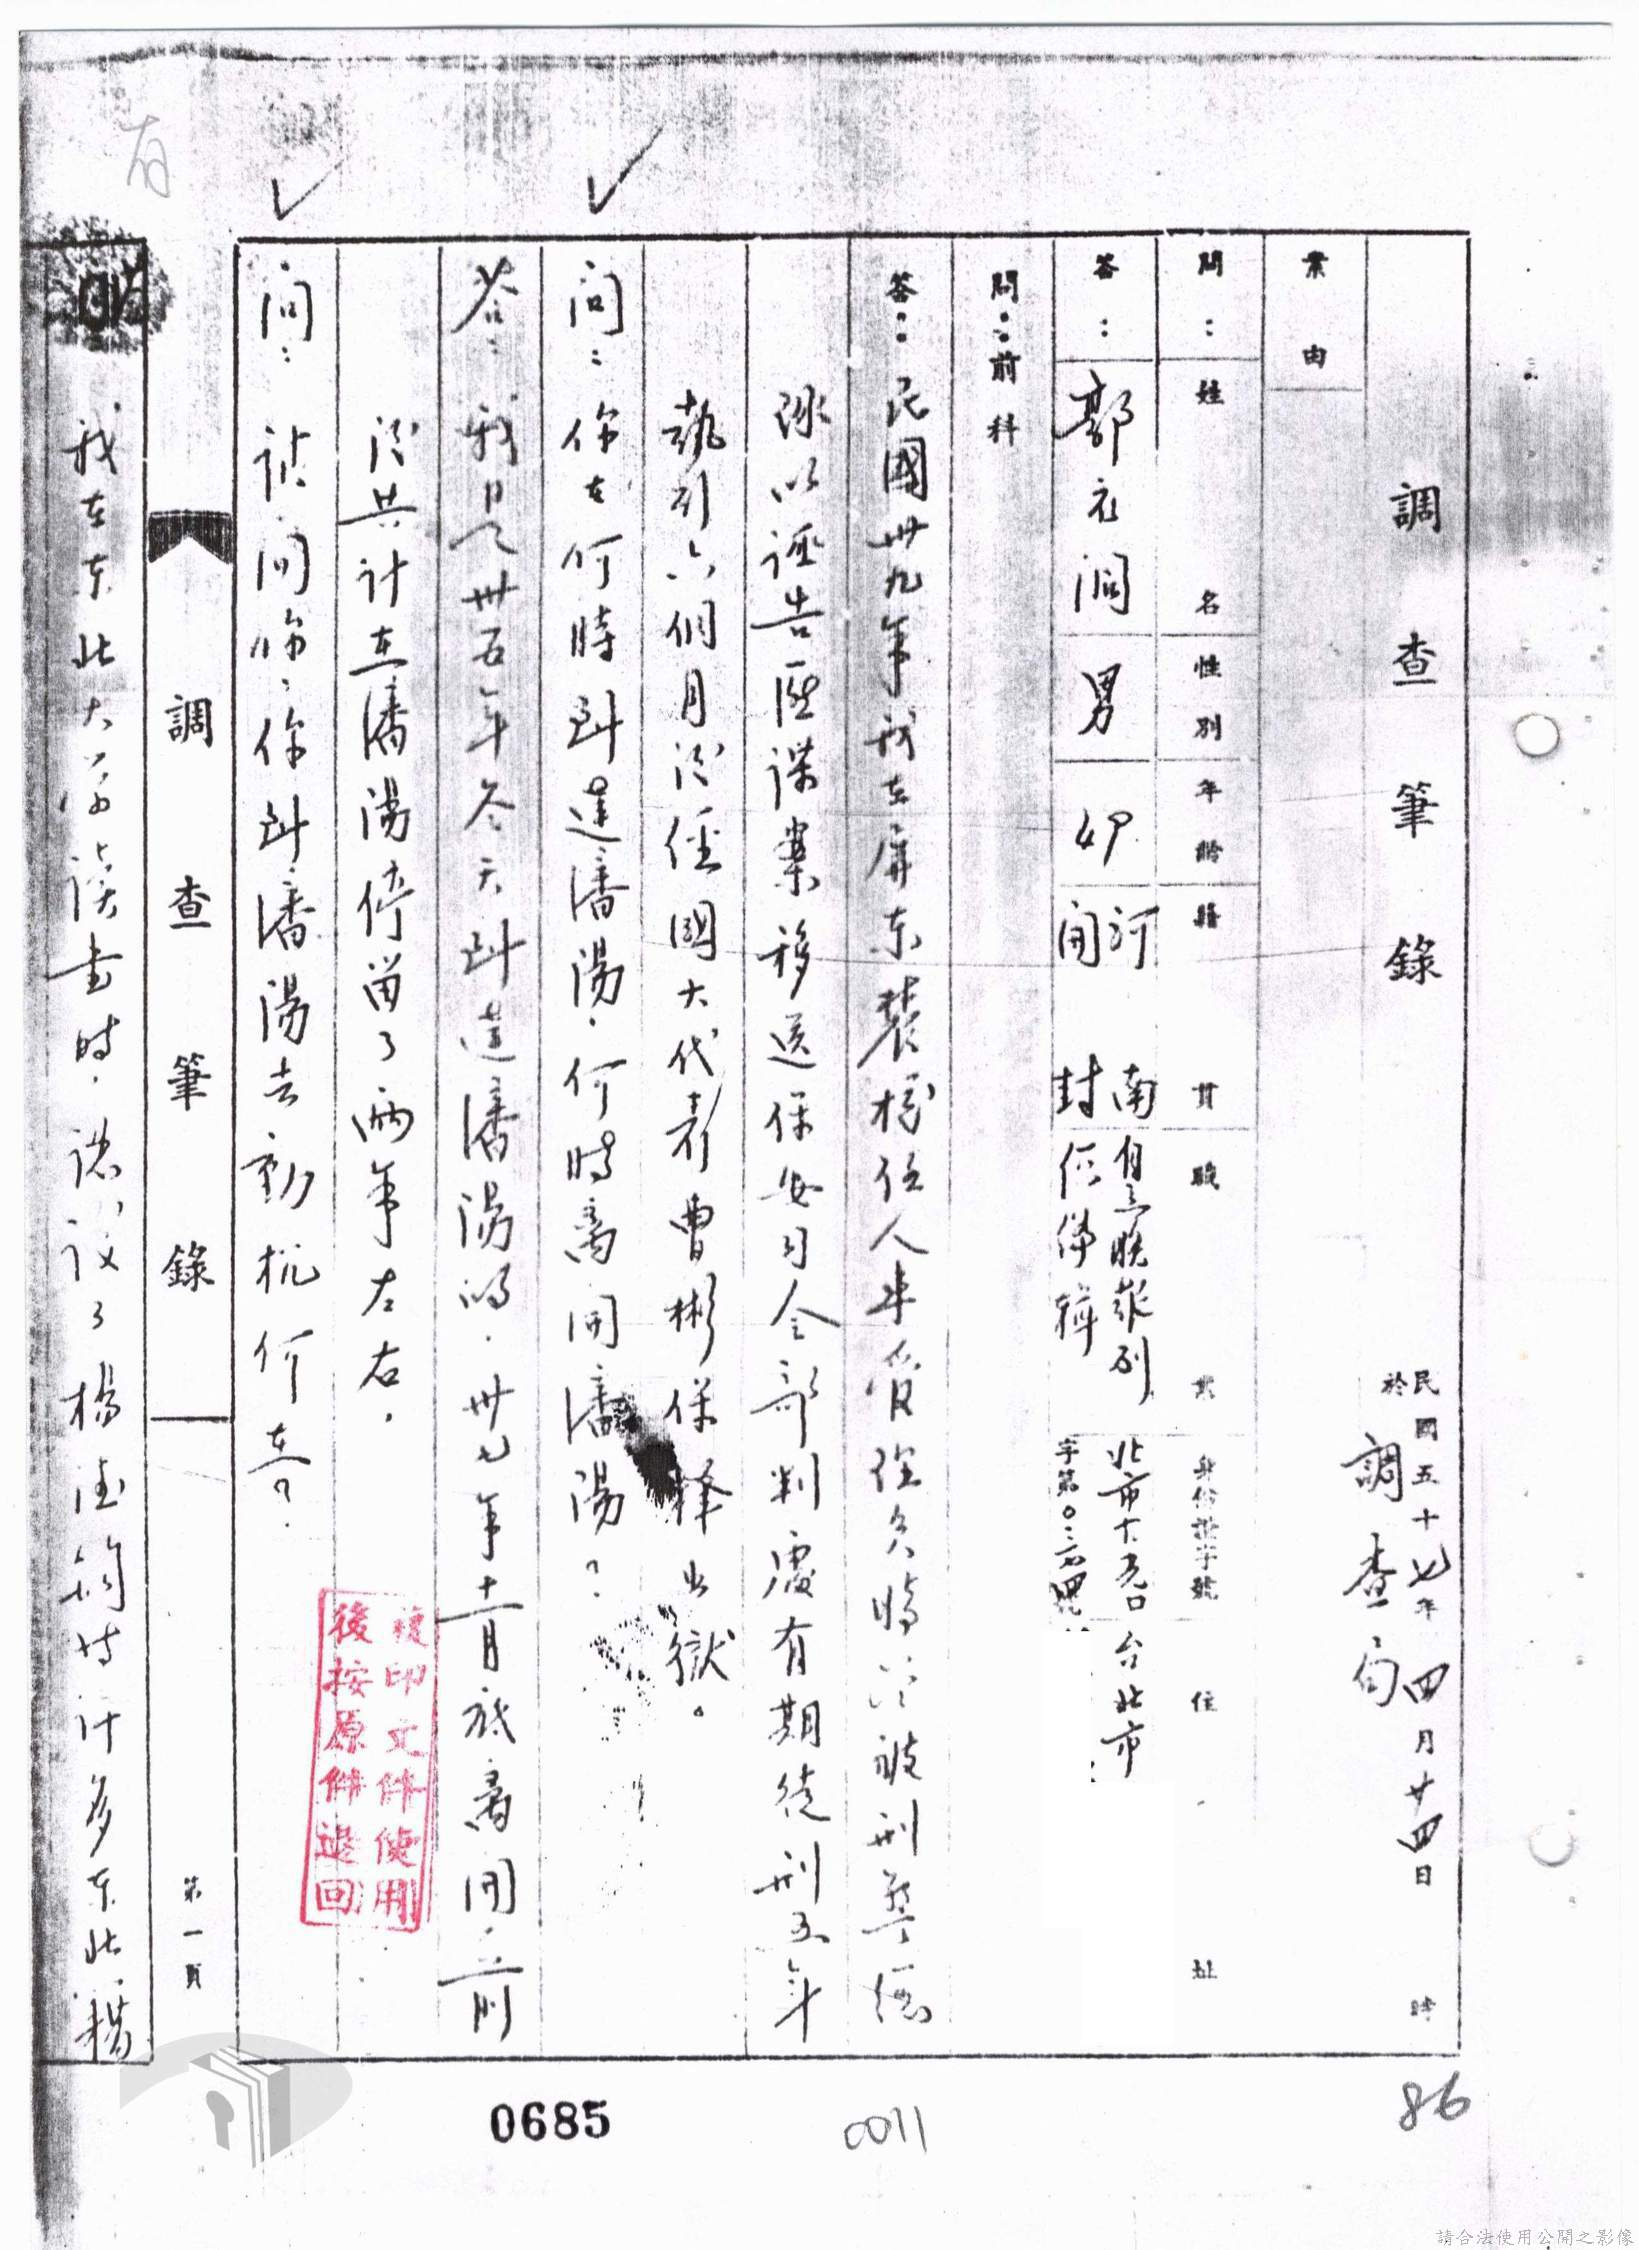 有
調查筆錄
民國五十七年四月廿四日 時
於調查局
案由
問：姓名 性別 年齡 籍貫 職業 身份證字號 住址
答：郭衣洞 男 49 河南開封 自立晚報 北市大 字第 台北市
問：前科
答：民國卅九年我在屏東農校任人事管
以誣告匪諜案移送保安司令部判處有期徒刑五年
執行六個月後經國大代表曹彬保釋出獄。
問：你在何時到達瀋陽，何時離開瀋陽？
答：我是卅五年冬天到達瀋陽的，卅七年十一月底離開，前
後共計在瀋陽停留了兩年左右，
問：請問你，你到瀋陽去動機何在？
複印文件使用
後按原件退回
調查筆錄
第一頁
我在東北大學讀書時，認識了楊德鈞等許多東北籍
0685
0011
86
請合法使用公開之影像